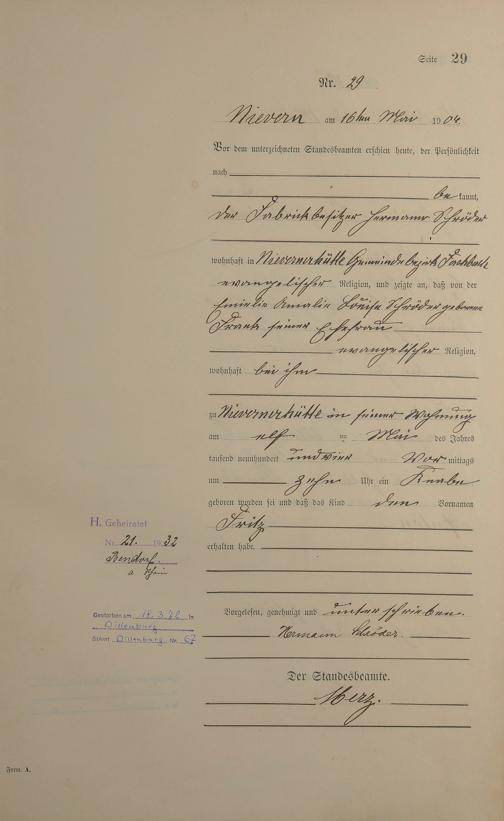 Seite 29
Nr. 29
Nievern am 16ten Mai 1904
Vor dem unterzeichneten Standesbeamten erschien heute, der Persönlichkeit
nach
bekannt,
der Fabrikbesitzer Hermann Schröder
wohnhaft in Nievernerhütte Gemeindebezirk Fachbach
evangelischer Religion, und zeigte an, daß von der
Emielie Amalie Louise Schröder geborene
Frank seiner Ehefrau
evangelischer Religion,
wohnhaft bei ihm
zu Nievernerhütte in seiner Wohnung
am elf ten Mai des Jahres
tausend neunhundert undvier Vor mittags
um zehn Uhr ein Knabe
geboren worden sei und daß das Kind den Vornamen
Fritz
erhalten habe.
H. Geheiratet
Nr. 21. 1932
Bendorf
a Rhein
Gestorben am 18.3.76 in
Dillenburg
StAmt Dillenburg Nr. 67
Vorgelesen, genehmigt und unterschrieben.
Hermann Schröder.
Der Standesbeamte.
Merz.
Form. A.